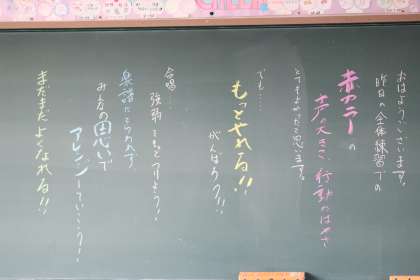 おはようございます。
昨日の全体練習での
赤カラーの
声の大きさ、行動のはやさ
とてもよかったと思います。
でも……
もっとやれる!!
がんばろう!!
合唱…
強弱をもっとつけよう!
楽譜にとらわれず、
みなの思いで
アレンジしていこう!
まだまだよくなれる!!